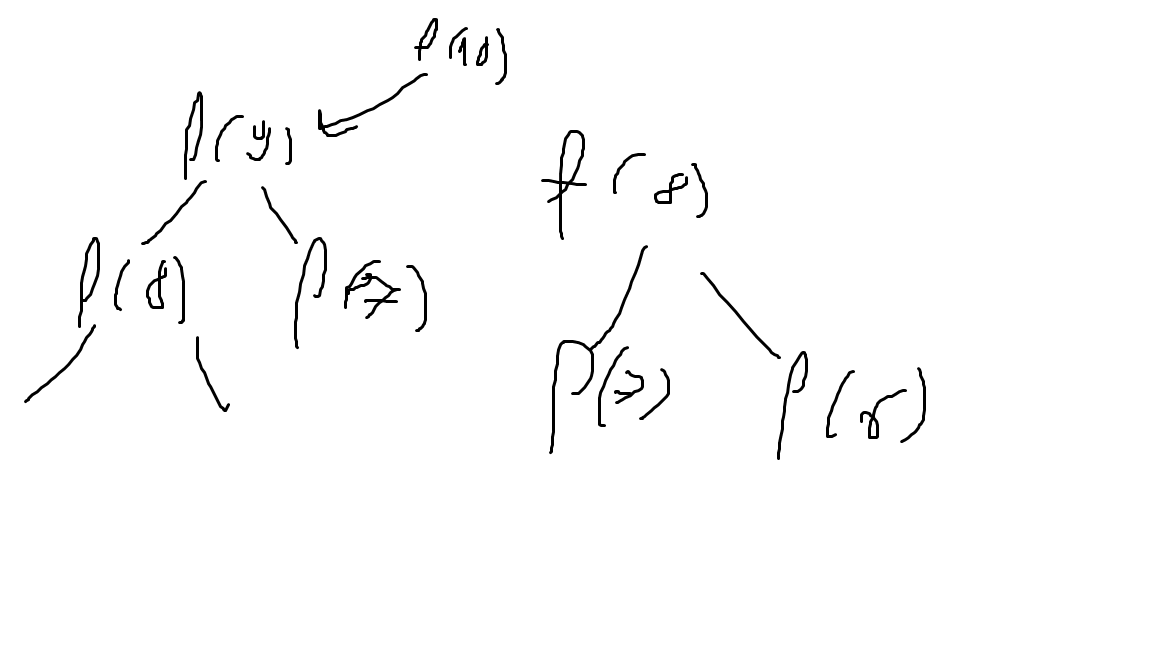 f(10)
f(9)
f(8)
f(8)
f(7)
f(7)